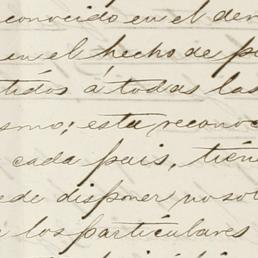 reconocido en el der
en el hecho de p
tidos á todas las
smo; está reconoc
cada pais, tién
ede disponer no sol
los particulares